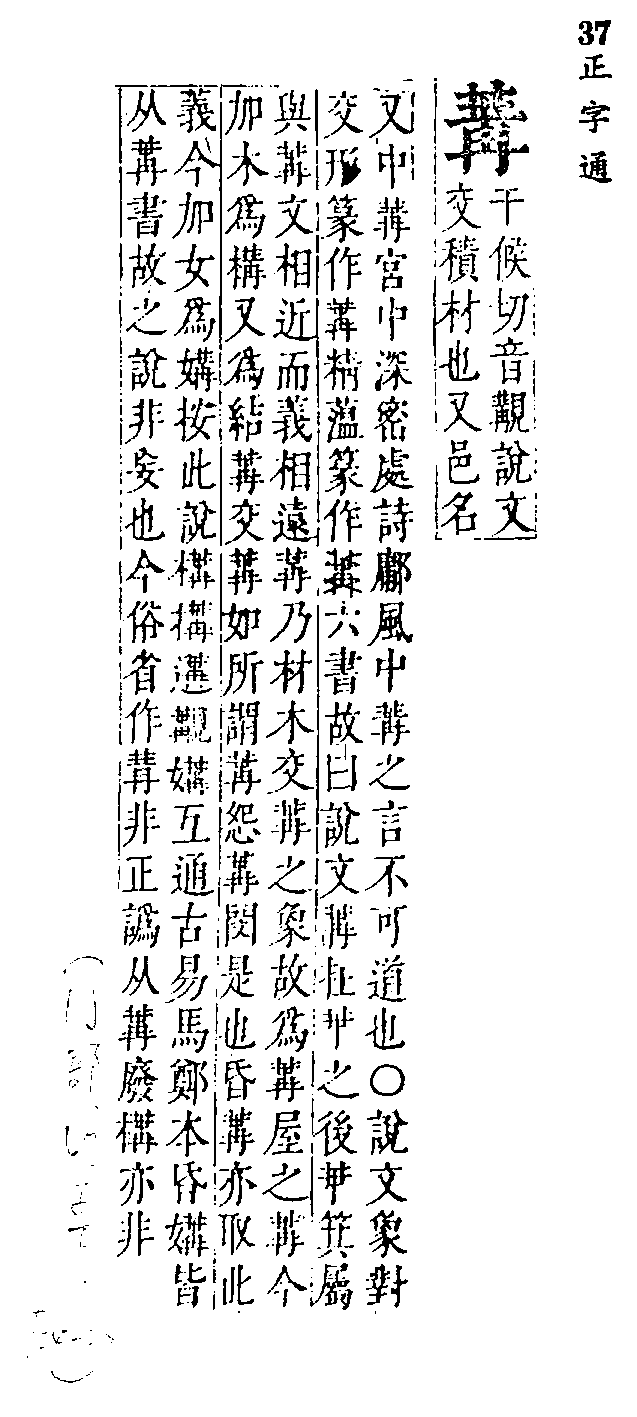 37正字通
冓
干候切音覯說文
交積材也又邑名
又中冓宮中深密處詩鄘風中冓之言不可道也○說文象對
交形篆作冓精薀篆作冓六書故曰說文冓在之後箕屬
與冓文相近而義相遠冓乃材木交冓之象故為冓屋之冓今
加木為構又為結冓交冓如所謂冓怨冓閔是也昏冓亦取此
義今加女為媾按此說構搆遘覯媾互通古易馬鄭本昏媾皆
从冓書故之說非妄也今俗省作冓非正譌从冓廢構亦非